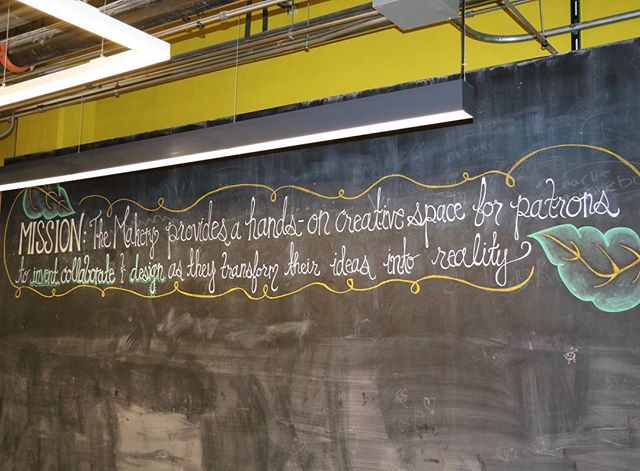 MISSION: The Makery provides a hands-on creative space for patrons
to invent, collaborate & design as they transform their ideas into reality